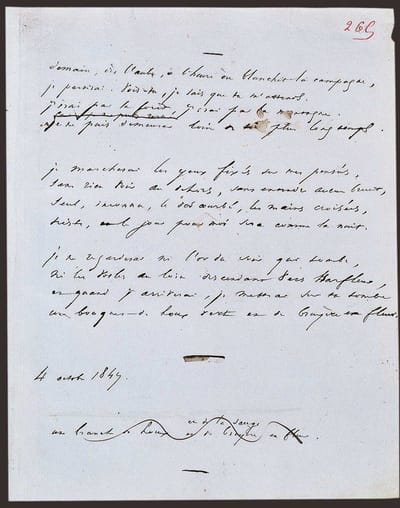 demain, dès l'aube, à l'heure où blanchit la campagne,
je partirai. Vois-tu, je sais que tu m'attends.
j'irai par la forêt, j'irai par la montagne.
je ne puis demeurer loin de toi plus longtemps.
je marcherai les yeux fixés sur mes pensées,
sans rien voir au dehors, sans entendre aucun bruit,
seul, inconnu, le dos courbé, les mains croisées,
triste, et le jour pour moi sera comme la nuit.
je ne regarderai ni l'or du soir qui tombe,
ni les voiles au loin descendant vers Harfleur,
et quand j'arriverai, je mettrai sur ta tombe
un bouquet de houx vert et de bruyère en fleur.
4 octobre 1847.
et de la sauge
une branche de houx et de bruyère en fleur.